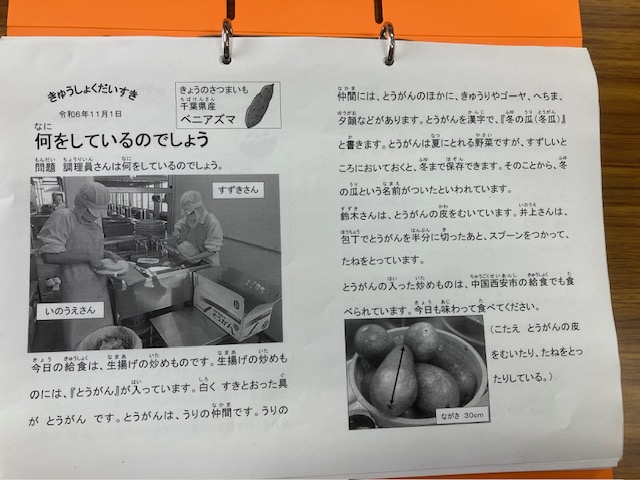 きゅうしょくだいすき
令和6年11月1日
きょうのさつまいも
千葉県産
ベニアズマ
何をしているのでしょう
問題　調理員さんは何をしているのでしょう。
すずきさん
いのうえさん
とうがん
今日の給食は、生揚げの炒めものです。生揚げの炒めも
のには、『とうがん』が入っています。白く すきとおった具
が とうがん です。とうがんは、うりの仲間です。うりの
仲間には、とうがんのほかに、きゅうりやゴーヤ、へちま、
夕顔などがあります。とうがんを漢字で、『冬の瓜（冬瓜）』
と書きます。とうがんは夏にとれる野菜ですが、すずしいと
ころにおいておくと、冬まで保存できます。そのことから、冬
の瓜という名前がついたといわれています。
鈴木さんは、とうがんの皮をむいています。井上さんは、
包丁でとうがんを半分に切ったあと、スプーンをつかって、
たねをとっています。
とうがんの入った炒めものは、中国西安市の給食でも食
べられています。今日も味わって食べてください。
（こたえ　とうがんの皮
をむいたり、たねをとっ
たりしている。）
ながさ 30cm